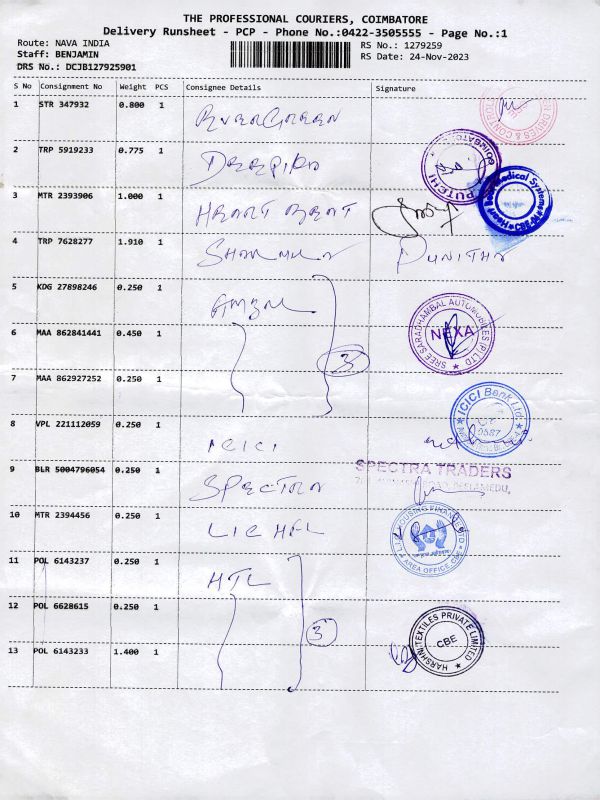 THE PROFESSIONAL COURIERS, COIMBATORE
Delivery Runsheet - PCP - Phone No.:0422-3505555 - Page No.:1
Route: NAVA INDIA
RS No.: 1279259
Staff: BENJAMIN
RS Date: 24-Nov-2023
DRS No.: DCJB127925901
S No Consignment No Weight PCS Consignee Details Signature
1 STR 347932 0.800 1 EVERGREEN
DRIVES & CONTR
2 TRP 5919233 0.775 1 DEEPIKA
COIMBATO
3 MTR 2393906 1.000 1 HEART BEAT
Heart Beat Medical Systems CBE
4 TRP 7628277 1.910 1 SHARMILA PUNITHA
5 KDG 27898246 0.250 1 AMBAL
SREE SARADHAMBAL AUTOMOBILES (P) LTD
NEXA
6 MAA 862841441 0.450 1
3
7 MAA 862927252 0.250 1
ICICI Bank Ltd.
8 VPL 221112059 0.250 1 ICICI
9 BLR 5004796054 0.250 1 SPECTRA
SPECTRA TRADERS
10 MTR 2394456 0.250 1 LIC HFL
LIC HOUSING FINANCE LTD
AREA OFFICE, CBE
11 POL 6143237 0.250 1 HTL
12 POL 6628615 0.250 1
3
HARSHNI TEXTILES PRIVATE LIMITED
CBE
13 POL 6143233 1.400 1